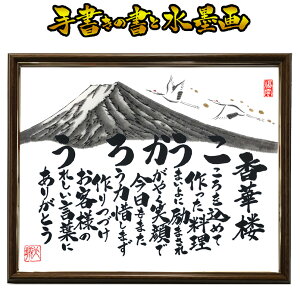 手書きの書と水墨画
香華楼
こころを込めて
作った料理
うまいよに励まされ
かがやく笑顔で
今日もまた
ろう力惜します
作りつづけ
お客様の
うれしい言葉に
ありがとう